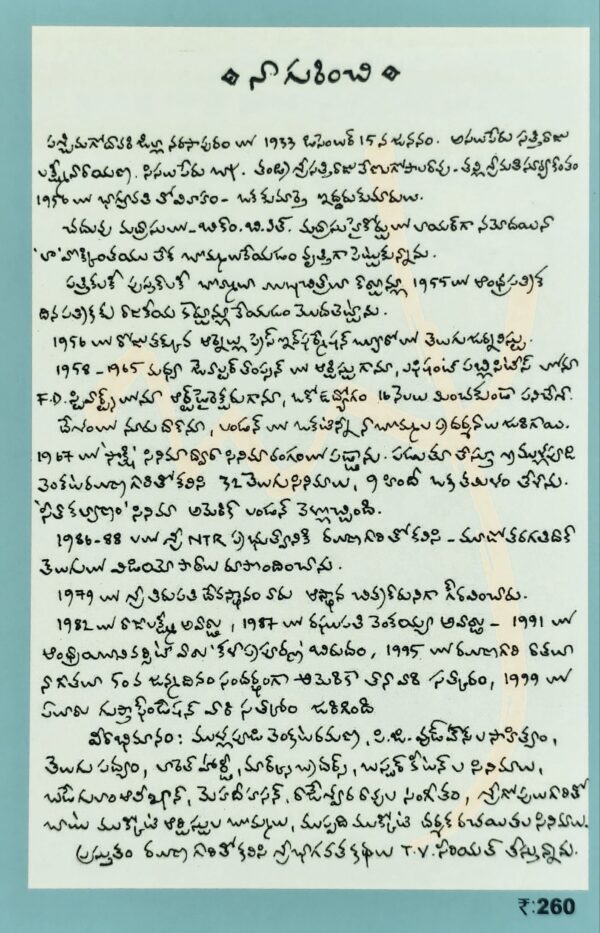 నా గురించి
పశ్చిమగోదావరి జిల్లా నరసాపురం లో 1933 డిసెంబర్ 15 న జననం. అసలుపేరు సత్తిరాజు
లక్ష్మీనారాయణ. సినిమాపేరు బాపు. తండ్రి శ్రీ సత్తిరాజు వేణుగోపాలరావు - తల్లి శ్రీమతి సూర్యకాంతం
1956 లో భాగ్యవతి తో వివాహం - ఒక కుమార్తె ఇద్దరు కుమారులు.
చదువు మద్రాసులో - బి.కాం. బి.ఎల్. మద్రాసు హైకోర్టులో లాయర్‌గా నమోదయినా
'లా' పాయింటయినా లేక బొమ్మలు వేయడం వృత్తిగా పెట్టుకున్నాను.
పత్రికలకీ పుస్తకాలకీ బొమ్మలూ ముఖచిత్రాలూ కార్టూన్లూ 1955 లో ఆంధ్రపత్రిక
దినపత్రికకు రాజకీయ కార్టూన్లు వేయడం మొదలెట్టాను.
1956 లో రోజు తక్కువ ఆర్నెల్లు ప్రెస్ ఇన్‌ఫర్మేషన్ బ్యూరో లో తెలుగు జర్నలిస్టు.
1958 - 1965 మధ్య జె.వాల్టర్ థాంప్సన్ లో ఆర్టిస్టుగానూ, ఎఫిషంట్ పబ్లిసిటీస్ లోనూ
F.D. స్టివార్ట్స్ లోనూ ఆర్ట్ డైరెక్టరుగానూ, ఒకో ఉద్యోగం 16 నెలలు మించకుండా పనిచేశా.
దేశంలో నూరు దాకానూ, లండన్ లో ఒకటీ నా బొమ్మల ప్రదర్శనలు జరిగాయి.
1967 లో 'సాక్షి' సినిమా ద్వారా సినిమా రంగంలో పడ్డాను. పడుతూ లేస్తూ ముళ్లపూడి
వెంకటరమణ గారితో కలిసి 32 తెలుగు సినిమాలు, 9 హిందీ ఒక్క తమిళం తీశాను.
'సీతాకల్యాణం' సినిమా అమెరికా లండన్ వెళ్లొచ్చింది.
1986-88 లలో శ్రీ NTR ప్రభుత్వానికి రమణ గారితో కలిసి - మూడో తరగతి దాకా
తెలుగులో విడియో పాఠాలు రూపొందించాను.
1979 లో శ్రీ తిరుపతి దేవస్థానం వారు ఆస్థాన చిత్రకారునిగా గౌరవించారు.
1982 లో రాజ్యలక్ష్మి అవార్డు, 1987 లో రఘుపతి వెంకయ్య అవార్డు - 1991 లో
ఆంధ్రా యూనివర్సిటీ వారి 'కళాప్రపూర్ణ' బిరుదం, 1995 లో రమణగారి రాతలూ
నా గీతలూ 50వ జన్మదినం సందర్భంగా అమెరికా తానా వారి సత్కారం, 1999 లో
ఏలూరు గుప్తా ఫౌండేషన్ వారి సత్కారం జరిగింది
వీరాభిమానం: ముళ్లపూడి వెంకటరమణ, పి.జి. వుడ్‌హౌస్ ల సాహిత్యం,
తెలుగు పద్యం, లారెల్ హార్డీ, మార్క్స్ బ్రదర్స్, బస్టర్ కీటన్ ల సినిమాలు,
బడేగులాం అలీఖాన్, మెహదీ హసన్, రాజేశ్వరరావుల సంగీతం, శ్రీ గోపులు గారితో
బాటు ముక్కోటి ఆర్టిస్టుల బొమ్మలు, ముప్పది ముక్కోటి దర్శక రచయితల సినిమాలు.
ప్రస్తుతం రమణ గారితో కలిసి శ్రీభాగవత కథలు T.V. సీరియల్ తీస్తున్నాను.
₹:260